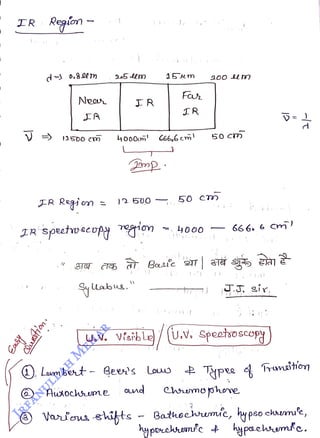 IR Region -
d → 0.8 µm 2.5 µm 15 µm 200 µm
Near IR
IR
Far IR
ν̄ = 1/d
ν̄ ⇒ 12500 cm 4000 cm⁻¹ 666.6 cm⁻¹ 50 cm
Imp.
IR Region = 12500 — 50 cm⁻
IR spectroscopy region - 4000 — 666.6 cm⁻¹
" अब तक तो Basic था | अब शुरू होता है
Syllabus."
J.J. Sir.
Easy Question.
U.V. Visible / U.V. Spectroscopy
① Lambert - Beer's Law & Types of Transition
② Auxochrome and chromophore
③ Various shifts - Bathochromic, hypsochromic,
hyperchromic & hypochromic.